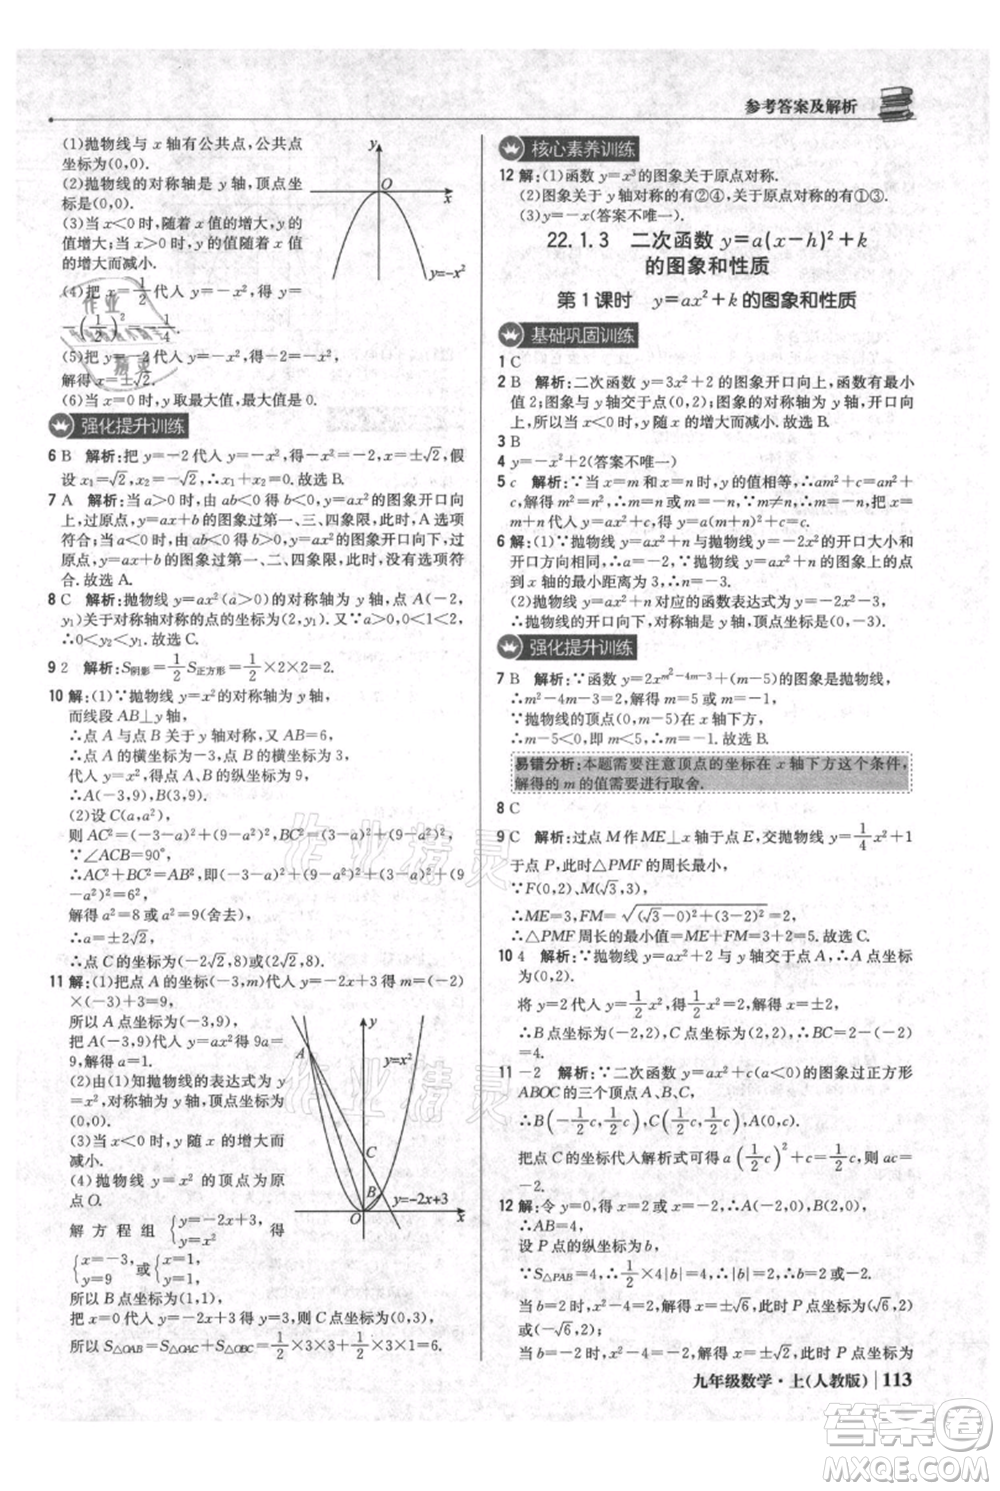 参考答案及解析
(1)抛物线与 x 轴有公共点,公共点
坐标为(0,0).
(2)抛物线的对称轴是 y 轴,顶点坐
标是(0,0).
(3)当 x<0 时,随着 x 值的增大,y
值增大;当 x>0 时,y 的值随着 x 的
增大而减小.
(4)把 x=1/2代入 y=-x²,得 y=
-(1/2)²=-1/4.
(5)把 y=-2 代入 y=-x²,得-2=-x²,
解得 x=±√2.
(6)当 x=0 时,y 取最大值,最大值是 0.
O x y=-x²
强化提升训练
6 B 解析:把 y=-2 代入 y=-x²,得 x=±√2,假
设 x₁=√2,x₂=-√2,∴x₁+x₂=0.故选 B.
7 A 解析:当 a>0 时,由 ab<0 得 b<0,
符合;当 a<0 时,由 ab<0 得 b>0,
合.故选 A.
8 C 解析:抛物线 y=ax²(a>0)的对称轴是 y 轴,点 A(-2,
y₁)关于对称轴对称的点的坐标为(2,y₁).又∵a>0,0<1<2,
∴0<y₂<y₁.故选 C.
9 2 解析:S阴影=1/2S正方形=1/2×2×2=2.
10 解:(1)∵抛物线 y=x²的对称轴是 y 轴,
而线段 AB⊥y 轴,
∴点 A 与点 B 关于 y 轴对称,又∵AB=6,
∴点 A 的横坐标为-3,点 B 的横坐标为 3.
当 x=3 时,y=9,
∴A(-3,9),B(3,9).
(2)设 C(a,a²),
则 AC²=(-3-a)²+(9-a²)²,BC²=(3-a)²+(9-a²)².
∵∠ACB=90°,
∴AC²+BC²=AB²,即(-3-a)²+(9-a²)²+(3-a)²+(9
-a²)²=6²,
解得 a²=8 或 a²=9(舍去),
∴a=±2√2,
∴点 C 坐标为(-2√2,8)或(2√2,8).
11 解:(1)把点 A 的坐标(-3,m)代入 y=-2x+3,得 m=-2
×(-3)+3=9,
所以 A 点坐标为(-3,9).
把 A 点坐标(-3,9)代入 y=ax²,得 9a=
9,解得 a=1.
(2)由(1)知抛物线的表达式为 y=
x²,对称轴为 y 轴,顶点坐标为
(0,0).
(3)当 x<0 时,y 随 x 的增大而减小.
(4)抛物线 y=x² 的顶点为原
点 O.
解方程组{y=-2x+3, y=x², 得
{x=-3, y=9 或{x=1, y=1.
所以点 B 坐标为(1,1),
把 x=0 代入 y=-2x+3,得 y=3,故点 C 坐标为(0,3),
所以 S△OAB=S△OAC+S△OBC=1/2×3×3+1/2×3×1=6.
y y=x² A C B y=-2x+3 O x
核心素养训练
12 解:(1)函数 y=x³的图象关于原点对称.
(2)图象关于 y 轴对称的有②④,关于原点对称的有①③.
(3)y=-x(答案不唯一).
22.1.3 二次函数 y=a(x-h)²+k
的图象和性质
第 1 课时 y=ax²+k 的图象和性质
基础巩固训练
1 C
2 B 解析:二次函数 y=3x²+2 的图象开口向上,函数有最小
值 2;图象与 y 轴交于点(0,2),对称轴为 y 轴,开口向
上,所以当 x<0 时,y 随 x 的增大而减小.故选 B.
3 B
4 y=-x²+2(答案不唯一)
5 c 解析:∵当 x=m 和 x=n 时,y 的值相等,∴am²+c=an²+
c,变形得 a(m+n)(m-n)=0.∵m≠n,∴m+n=0,把 x=
m+n 代入 y=ax²+c,得 y=a(m+n)²+c=c.
6 解:(1)∵抛物线 y=ax²+n 与抛物线 y=-2x²的开口大小和
开口方向相同,∴a=-2.
∴n=±3.
7 B 解析:∵函数 y=2x^(m²-4m-3)+(m-5)的图象是抛物线,
∴m²-4m-3=2,解得 m=5 或 m=-1.
∵抛物线的顶点(0,m-5)在 x 轴下方,
∴m-5<0,即 m<5.∴m=-1.故选 B.
强化提升训练
易错分析:本题需要注意顶点的坐标在 x 轴下方这个条件,
解得的 m 的值需要进行取舍.
8 C
9 C 解析:过点 M 作 ME⊥x 轴于点 E,交抛物线 y=1/4x²+1
于点 P,此时△PMF 的周长最小,
∵F(0,2),M(√3,3),
∴ME=3,FM=√((√3-0)²+(3-2)²)=2,
∴△PMF 周长的最小值=ME+FM=3+2=5.故选 C.
10 4 解析:∵抛物线 y=ax²+2 与 y 轴交于点 A,∴A 点坐标为
(0,2).
将 y=2 代入 y=1/2x²,得 2=1/2x²,解得 x=±2,
∴B 点坐标为(-2,2),C 点坐标为(2,2),∴BC=2-(-2)
=4.
11 -2 解析:∵二次函数 y=ax²+c 的图象过正方形
ABOC 的三个顶点 A,B,C,∴A(0,c),
∴B(-1/2c,1/2c),C(1/2c,1/2c),
把点 C 的坐标代入解析式可得 a(1/2c)²+c=1/2c,即 ac=
-2.
12 解:令 y=0,得-x²+4=0,解得 x=±2,∴A(-2,0),B(2,0),
∴AB=4.
设 P 点的坐标为(a,b),
∵S△PAB=4,∴1/2×4|b|=4,∴|b|=2,即 b=2 或 b=-2.
当 b=2 时,
当 b=-2 时,-x²+4=-2,解得 x=±√6,此时 P 点坐标为
九年级数学·上(人教版) 113
作业精灵
答案圈
MXQE.COM